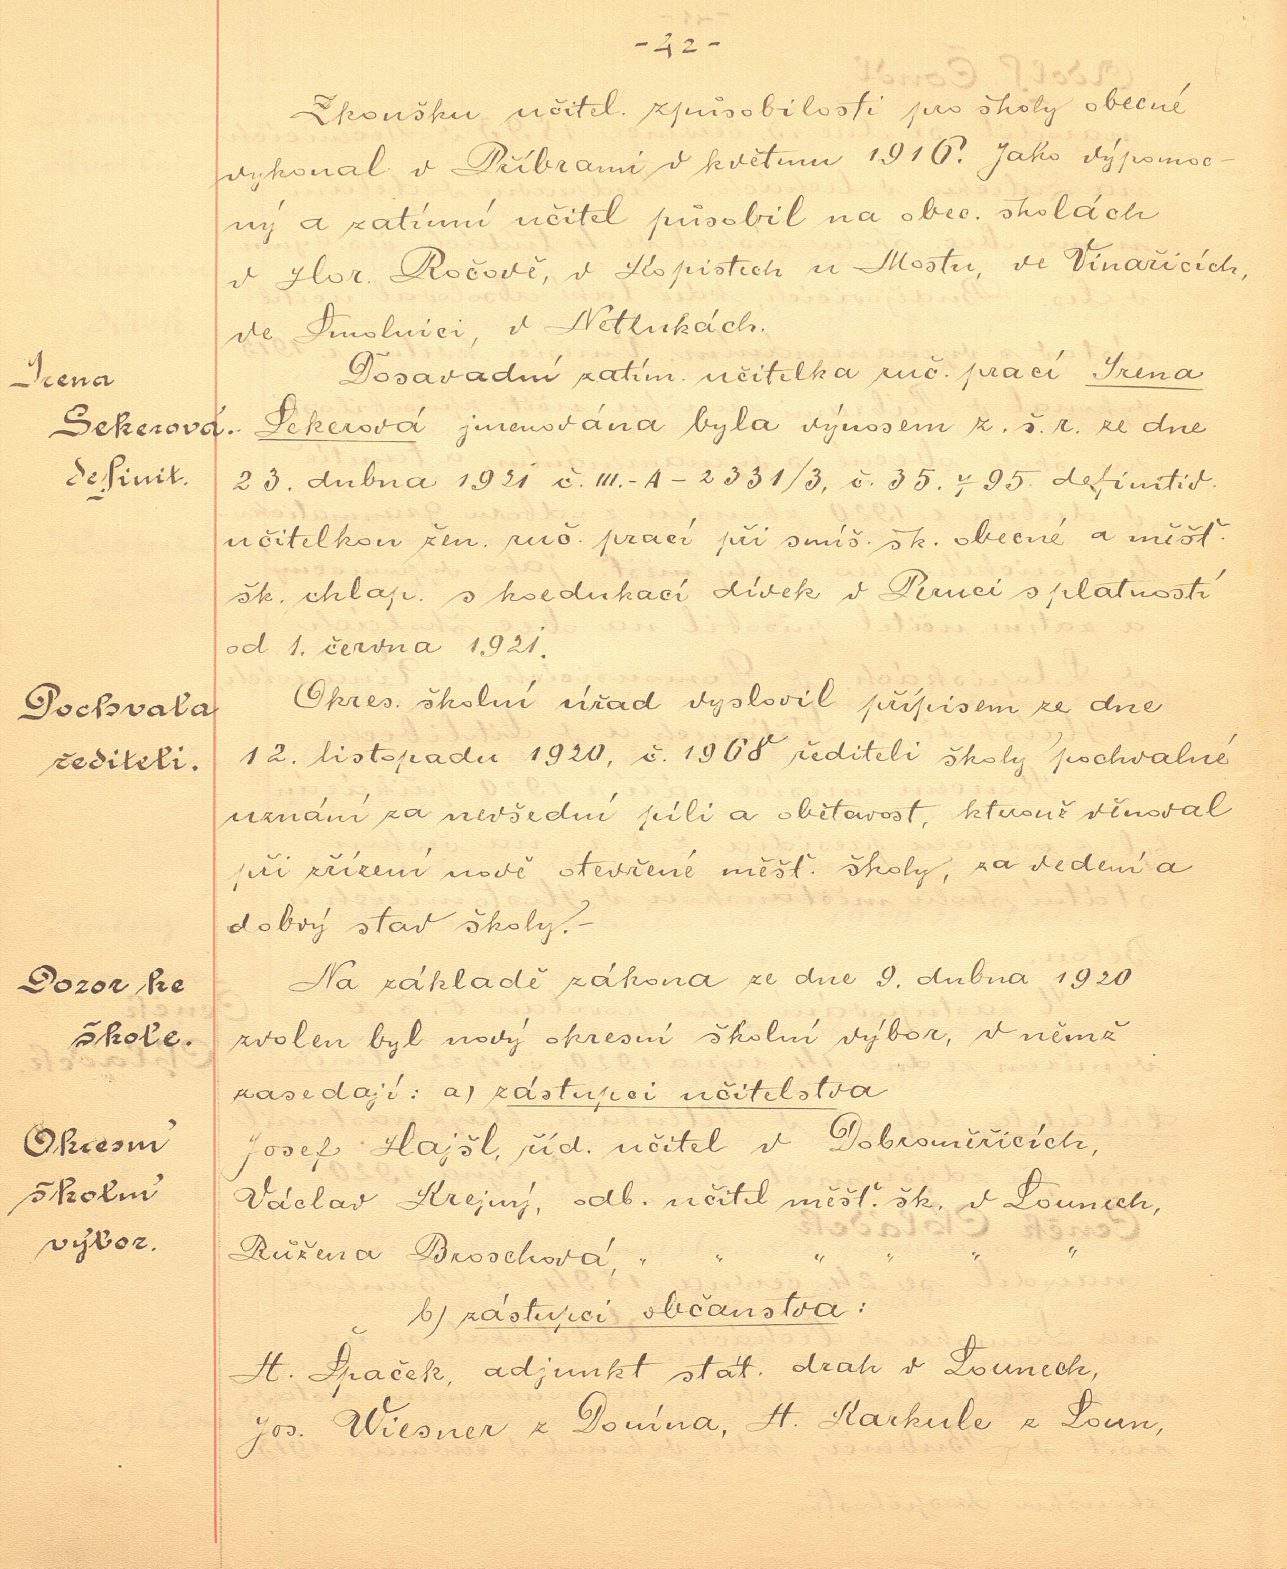 - 42 -
Zkoušku učitel. způsobilosti pro školy obecné
vykonal v Příbrami v květnu 1916. Jako výpomoc-
ný a zatímní učitel působil na obec. školách
v Hor. Ročově, v Kopistech u Mostu, ve Vinařicích,
ve Smolnici, v Netlukách.
Irena
Sekerová.
definit.
Dosavadní zatím. učitelka ruč. prací Irena
Sekerová jmenována byla výnosem z. š. r. ze dne
23. dubna 1921 č. III.-A-2331/3, č. 35. y 95. definitiv.
učitelkou žen. ruč. prací při smíš. šk. obecné a měšť.
šk. chlap. s koedukací dívek v Peruci s platností
od 1. června 1921.
Pochvala
řediteli.
Okres. školní úřad vyslovil přípisem ze dne
12. listopadu 1920, č. 1968 řediteli školy pochvalné
uznání za nevšední píli a obětavost, kterouž věnoval
při zřízení nově otevřené měšť. školy, za vedení a
dobrý stav školy.-
Dozor ke
škole.
Na základě zákona ze dne 9. dubna 1920
zvolen byl nový okresní školní výbor, v němž
zasedají: a) zástupci učitelstva
Okresní
školní
výbor.
Josef Hajšl, říd. učitel v Dobroměřicích,
Václav Krejný, odb. učitel měšť. šk. v Lounech,
Růžena Broschová, " " " " " "
b) zástupci občanstva:
H. Špaček, adjunkt stát. drah v Lounech,
Jos. Wiesner z Donína, H. Karkule z Loun,